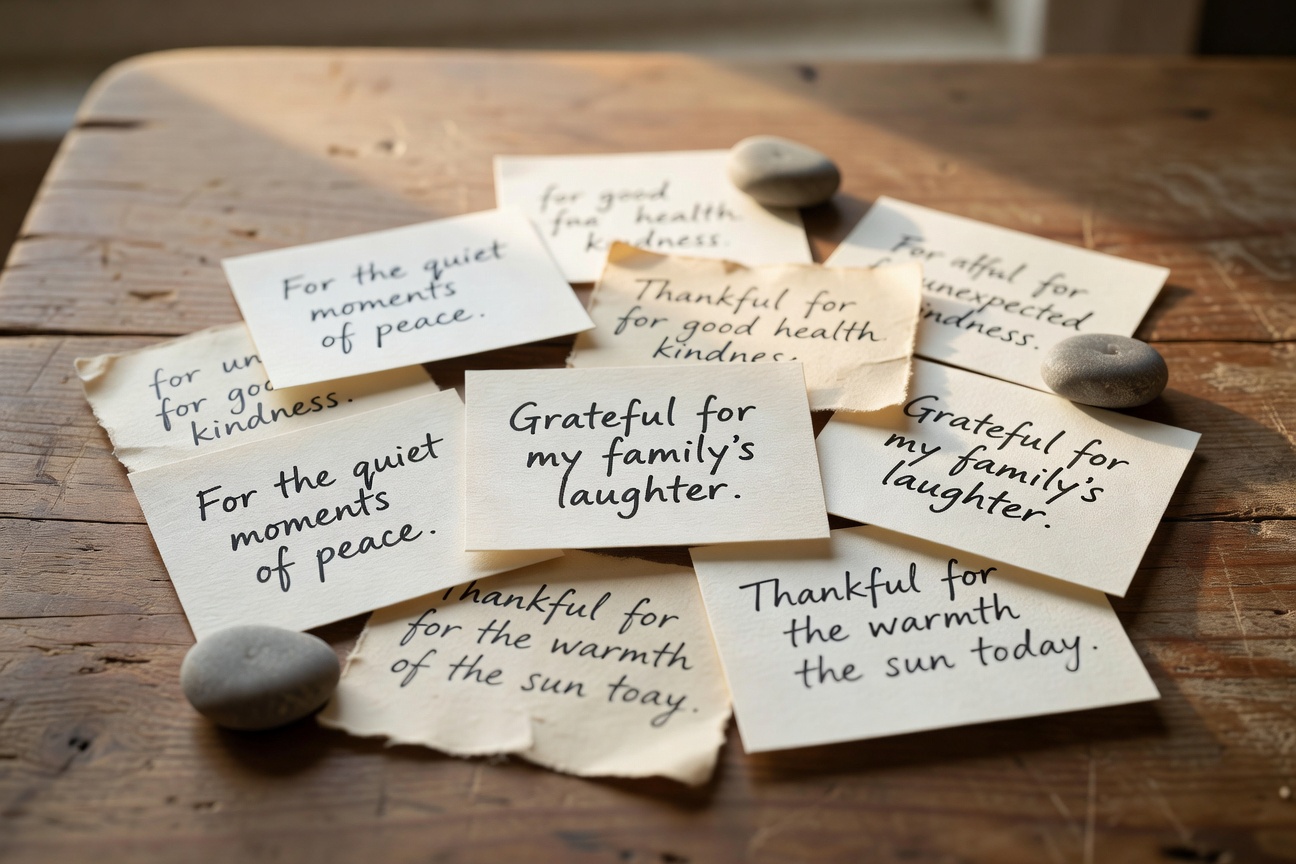 for good
health
kindness.
For the quiet
moments
of peace.
For atful for
unexpected
indness.
Thankful for
for good health
kindnes
for un
for goo
kindness.
For the quiet
moments
of peace.
Grateful for
my family's
laughter.
Grateful for
my family's
laughter.
Thankful for
for the warmth
of the sun toay.
Thankful for
the warmth
the sun today.